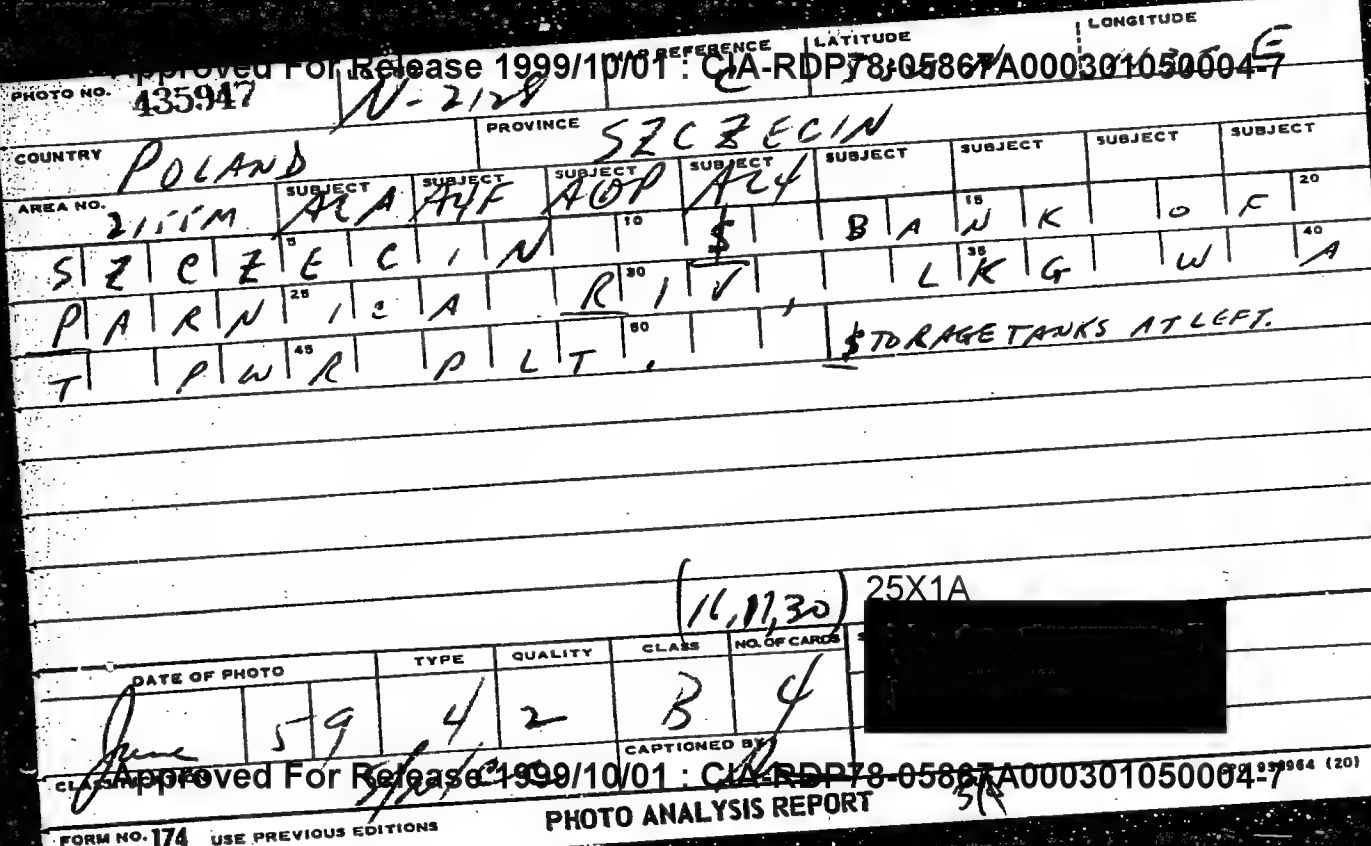 MAP REFERENCE LATITUDE LONGITUDE
Approved For Release 1999/10/01 : CIA-RDP78-05867A000301050004-7
PHOTO NO. 435947 N-2128 C E
COUNTRY POLAND PROVINCE SZCZECIN
AREA NO. 2155M SUBJECT A2A SUBJECT A4F SUBJECT AQP SUBJECT A24 SUBJECT SUBJECT SUBJECT SUBJECT
SZCZECIN $ BANK OF
PARNICA RIV, LKG WA
T PWR PLT. $TORAGE TANKS AT LEFT.
(16,17,30) 25X1A
DATE OF PHOTO TYPE QUALITY CLASS NO. OF CARDS
June 59 4 2 B 4
CAPTIONED BY
Approved For Release 1999/10/01 : CIA-RDP78-05867A000301050004-7
FORM NO. 174 USE PREVIOUS EDITIONS PHOTO ANALYSIS REPORT